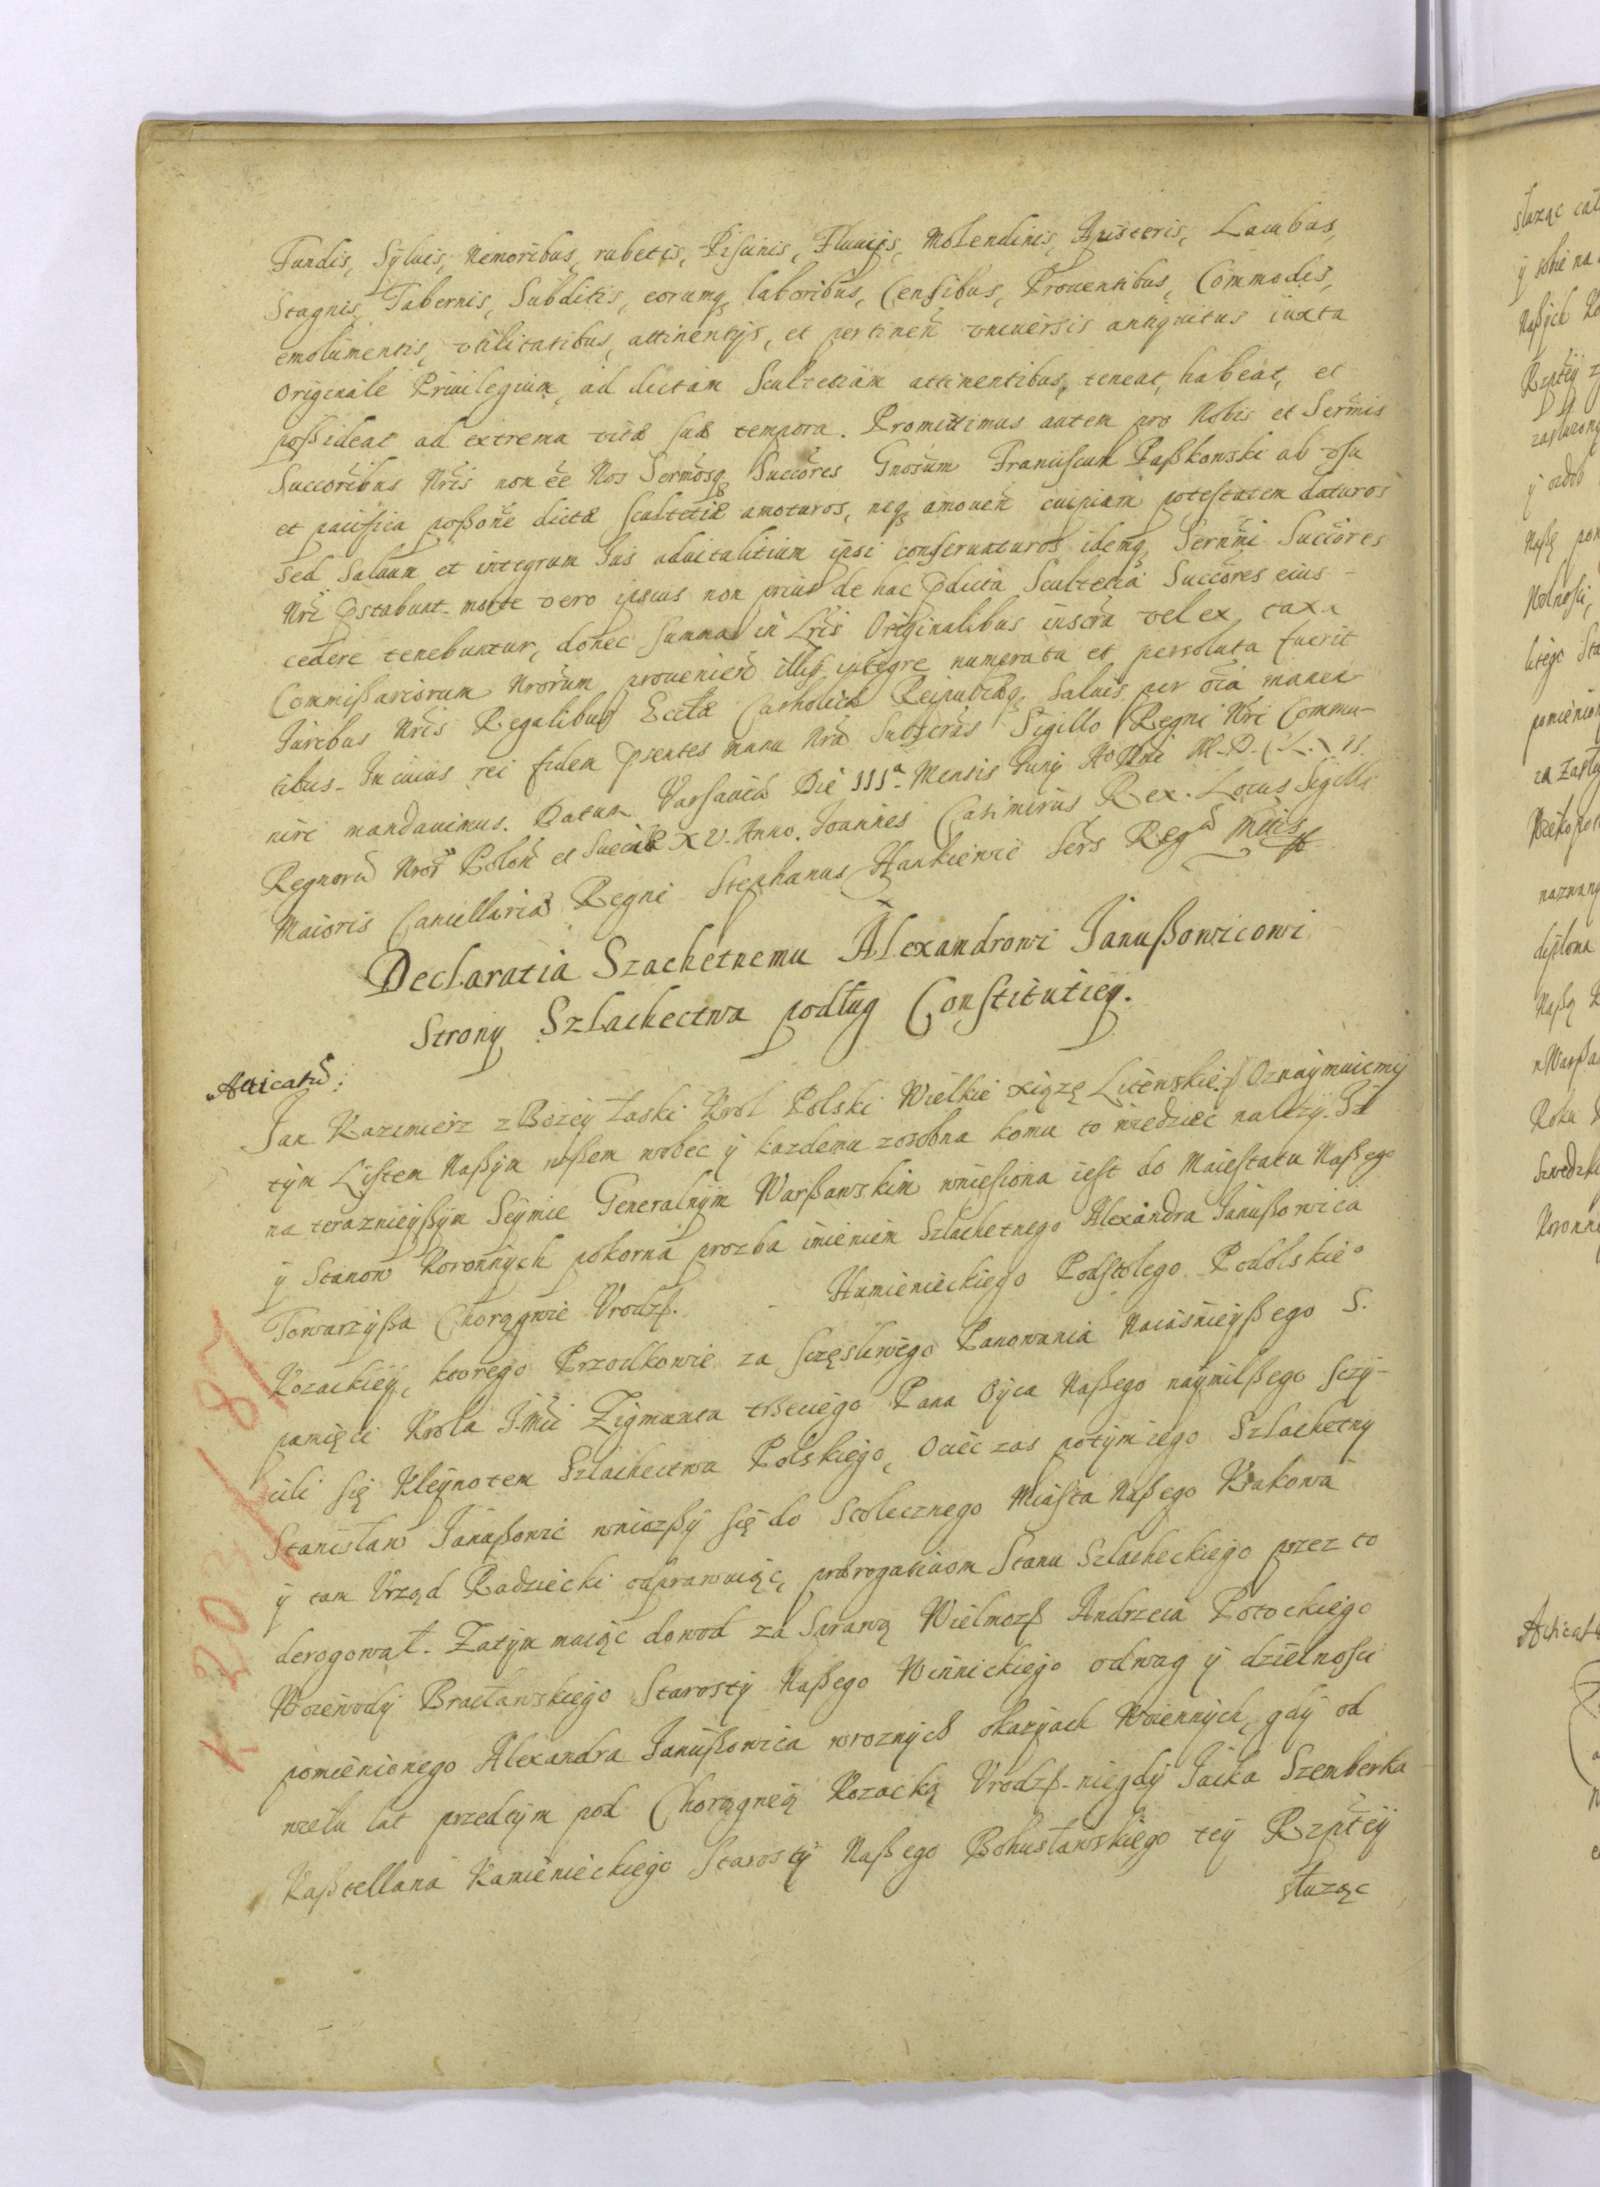 Fundis, Sÿluis, Nemoribus, rubetis, Piscinis, Fluuijs, Molendinis, Apisteris, Lacubus,
Stagnis, Tabernis, Subditis, eorumq, laboribus, Censibus, Prouentibus, Commodis,
emolumentis, vtilitatibus, attinentijs, et pertineñ vniuersis antiquitus iuxta
Originale Priuilegium, ad dictam Scultetiam attinentibus, teneat, habeat, et
poßideat ad extrema vitæ suæ tempora. Promittimus autem pro Nobis et Serm̃is
Succorĩbus Nrĩs non eẽ Nos Sermõsq Succõres Gnosũm Franciscum Paßkowski ab vsu
et pacifica poßonẽ dictæ scultetiæ amoturos, neq amoueñ cuipiam potestatem daturos
Sed Saluum et integrum Ius aduitalitium ipsi conseruaturos idemq, Sernm̃i Succõres
Nrĩ pstabunt. morte vero ipsius non prius de hac pdicta Scultetia Succõres eius
cedere tenebuntur, donec Summa in Lrĩs Originalibus inscrã vel ex taxa
Commißariorum Nrorũm prouenieñ illis integre numerata et persoluta fuerit
Iuribus Nrĩs Regalibus Ecclæ Catholicæ Reipublcæq, Saluis per oiã manen
tibus. In cuius rei fidem psentes manu Nrã Subscrãs Sigillo Regni Nrĩ Commu-
niri mandauimus. Datum Varsauiæ Die IIIa. Mensis Iunij Ao Dni M.D.C.L.XII.
Regnorũ Nror̃ Poloñ et Sueciæ XV. Anno. Ioannes Casimirus Rex. Locus Sigilli
Maioris Cancellariæ Regni Stephanus Hankiewic Sers Regæ Mttis
Declaratia Szachetnemu Alexandrowi Janußowicowi
Strony Szlachectwa podług Constitutiey.
Atticatũ:
Jan Kazimierz z Bożey Łaski Krol Polski Wielkie xiązę Litewskie Oznaÿmuiemÿ
tÿm Lÿstem Naßÿm wßem wobec ÿ kazdemu zosobna komu to wiedziec nalezÿ. Iz
na teraznieÿßÿm Seÿmie Generalnÿm Warßawskim wniesiona iest do Maiestatu Naßego
ÿ Stanow Koronnÿch pokorna prozba imieniem Szlachetnego Alexandra Janußowica
Towarzÿßa Chorągwie Vrodz. Humienieckiego Podstolego Podolskieo
Kozackieÿ, ktorego Przodkowie za sczęsliwego Panowania Naiasnieÿßego S.
pamięci Krola I.Mci Zigmunta trzeciego Pana Oÿca Naßego naÿmilßego sczÿ-
cili się Kleÿnotem Szlachectwa Polskiego, Ociec zas potÿm iego Szlachetny
Stanisław Janußowic wniozßÿ się do Stolecznego Miasta Naßego Krakowa
ÿ tam Vrząd Radziecki odprawuiąc, prærogatiuom Stanu Szlacheckiego przez to
derogował. Zatÿm maiąc dowod za Sprawą Wielmoz Andrzeia Potockiego
Woiewodÿ Bracławskiego Starostÿ Naßego Winnickiego odwag ÿ dzielnosci
pomienionego Alexandra Janußowica wroznÿch okazÿach Woiennÿch, gdÿ od
wielu lat przedtÿm pod Chorągwią Kozacką Vrodz. niegdÿ Jacka Szemberka
Kaßtellana Kamienieckiego Starostÿ Naßego Bohusławskiego teÿ Rzpltẽÿ
słuząc